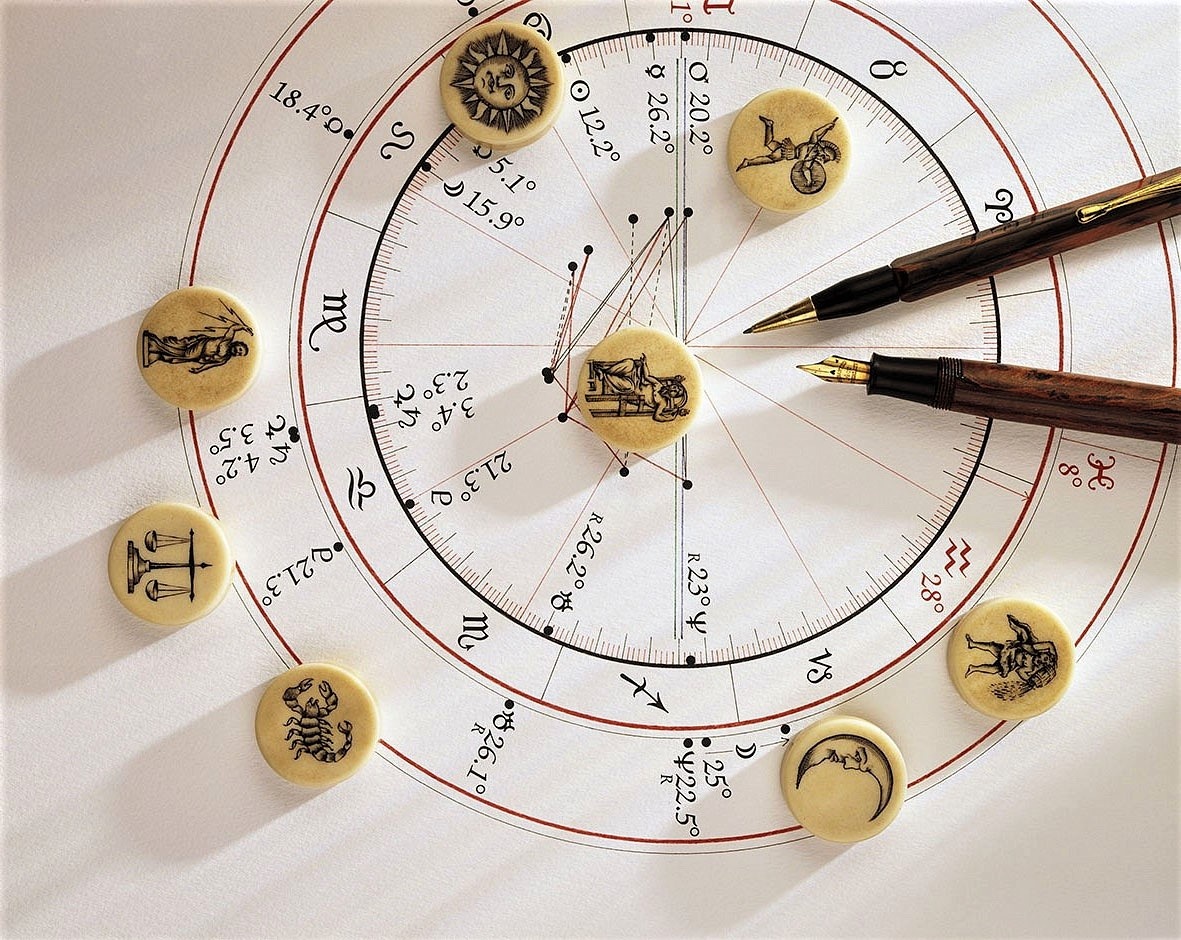 1° ♊
♋
♉
18.4° ♀
♌
☉ 12.2°
☿ 26.2°
♂ 20.2°
♀ 5.1°
☽ 15.9°
♈
♍
2.3°
3.4°
♃ ♄
♃ ♄
3.5°
4.2°
♎
♇ 21.3°
♇ 21.3°
♓
8°
♒
28°
R 26.2° ♅
R 23° ♆
♏
♐
♑
♅ 26.1°
R
25° ☽
♆ 22.5°
R